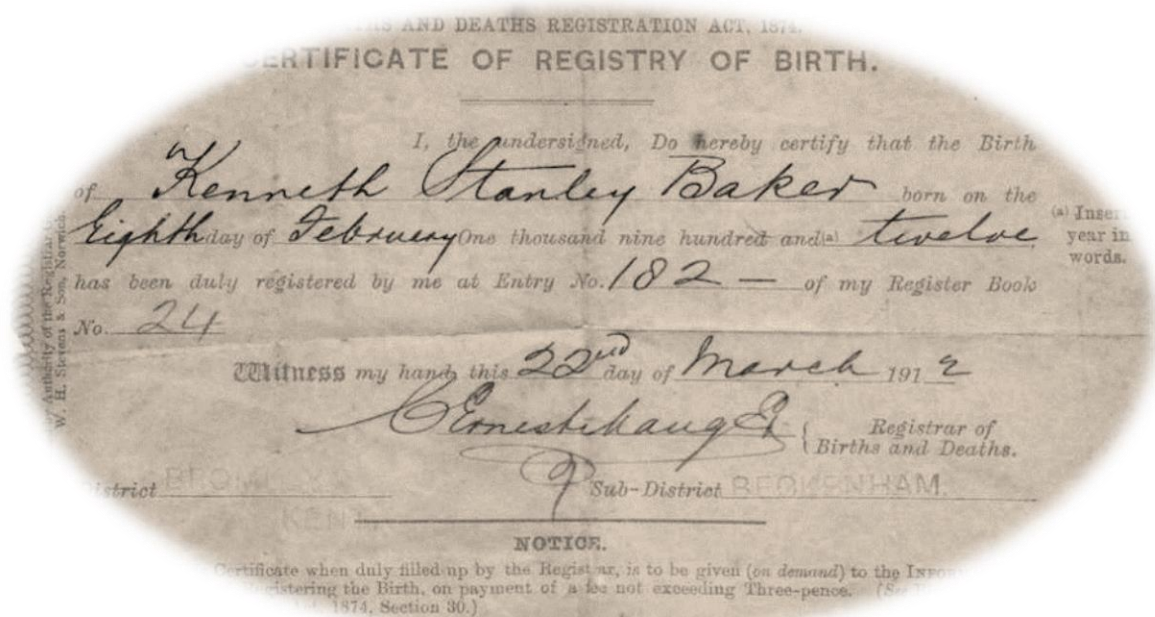 AND DEATHS REGISTRATION ACT, 1874.
CERTIFICATE OF REGISTRY OF BIRTH.
I, the undersigned, Do hereby certify that the Birth
of Kenneth Stanley Baker born on the
Eighth day of February One thousand nine hundred and (a) twelve
(a) Insert
year in
words.
has been duly registered by me at Entry No. 182 — of my Register Book
No. 24
Witness my hand, this 22nd day of March 1912
Registrar of
Births and Deaths.
District BROMLEY Sub-District BECKENHAM.
KENT
NOTICE.
Certificate when duly filled up by the Registrar, is to be given (on demand) to the
registering the Birth, on payment of a fee not exceeding Three-pence.
1874, Section 30.)
Authority of the Registrar
W. H. Stevens & Son, Norwich.